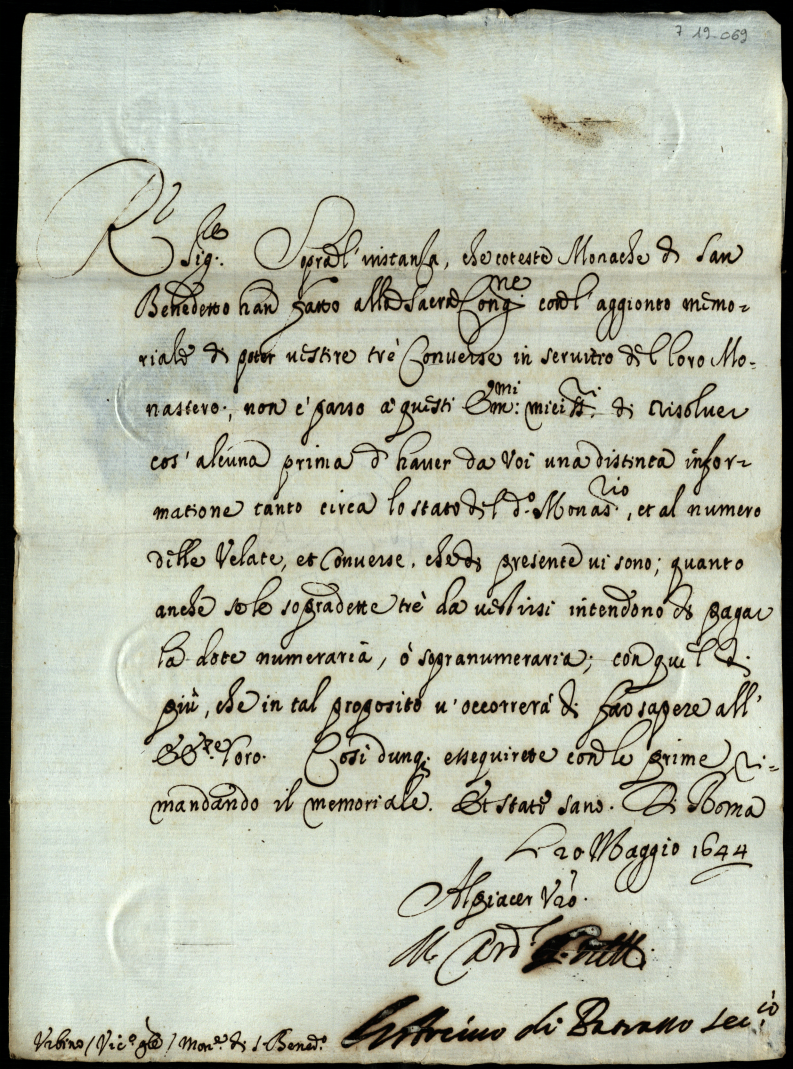 7 19-069
R.do
Sig.re Sopra l'instanza, che coteste Monache di San
Benedetto han fatto alla Sacra Cong.ne con l'aggionto memo-
riale di poter vestire trè Converse in servitio del loro Mo-
nastero, non è parso a questi Em.mi miei SS.ri di risolver
cos'alcuna prima d'haver da Voi una distinta infor-
matione tanto circa lo stato del d.o Monas.rio, et al numero
delle Velate, et Converse, che di presente vi sono; quanto
anche se le sopradette trè da vestirsi intendono di pagar
la dote numeraria, ò sopranumeraria; con quel di
più, che in tal proposito v'occorrerà di far sapere all'
EE.ze loro. Così dunq; essequirete con le prime ri-
mandando il memoriale. Et state sano. Di Roma
li 20 Maggio 1644
Al piacer V.ro
Il Card.l
di seg.rio
Urbino / Vic.o gle / Mon.e di S. Bened.o